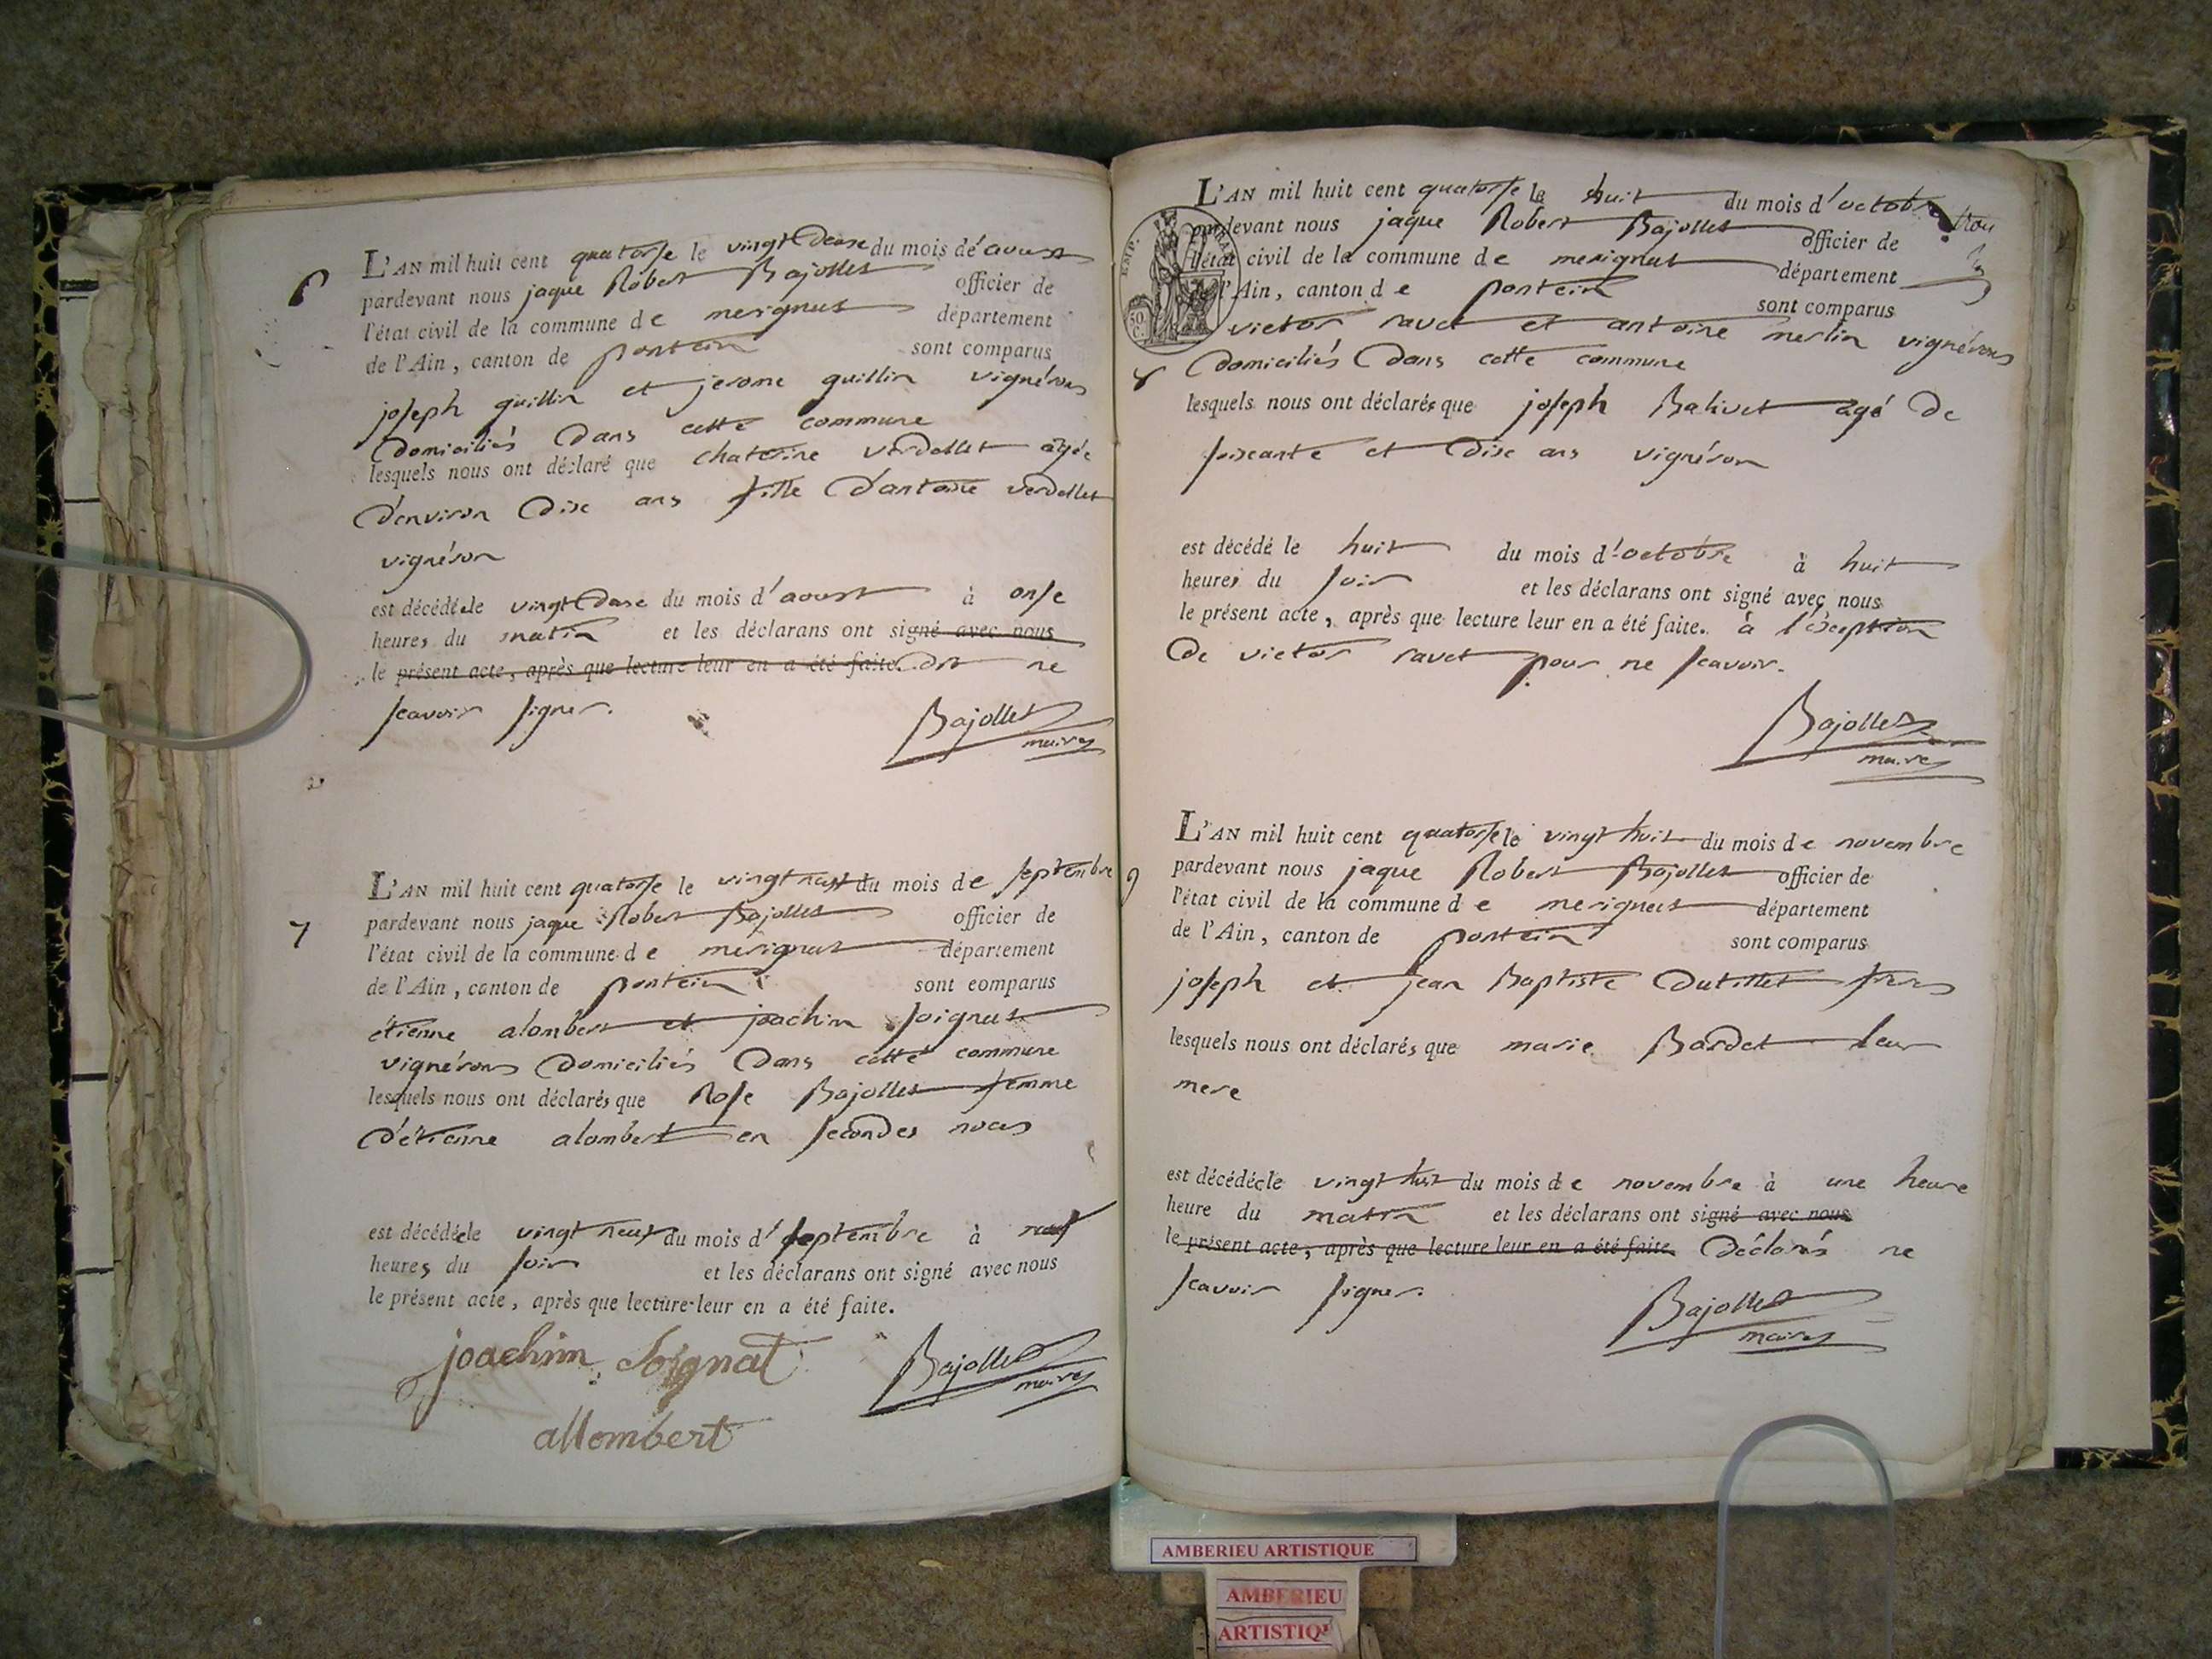 6
L'AN mil huit cent quatorse le vingt deuse du mois de aoust
pardevant nous jaque Robert Bajollet officier de
l'état civil de la commune de merignat département
de l'Ain, canton de pontein sont comparus
joseph guillin et jerome guillin vignérons
domiciliés dans cette commune
lesquels nous ont déclaré que chaterine verdellet agée
d'environ dise ans fille d'antoine verdellet
vignéron
est décédée le vingt duse du mois d'aoust à onse
heures du matin et les déclarans ont signé avec nous
le présent acte, après que lecture leur en a été faite. dit ne
scavoir signer.
Bajollet
maire
7
L'AN mil huit cent quatorse le vingt neuf du mois de septembre
pardevant nous jaque Robert Bajollet officier de
l'état civil de la commune de merignat département
de l'Ain, canton de pontein sont comparus
étienne alombert et joachim soignat
vignérons domiciliés dans cette commune
lesquels nous ont déclarés que Rose Bajollet femme
d'étienne alombert en secondes noces
est décédée le vingt neuf du mois d'septembre à neuf
heures du soir et les déclarans ont signé avec nous
le présent acte, après que lecture leur en a été faite.
joachim Soignat
Bajollet
maire
allombert
L'AN mil huit cent quatorse le huit du mois d'octobre
pardevant nous jaque Robert Bajollet officier de
l'état civil de la commune de merignat département
de l'Ain, canton de pontein sont comparus
victor ravet et antoine merlin vignérons
8
domiciliés dans cette commune
lesquels nous ont déclarés que joseph Balivet agé de
soixante et dise ans vignéron
est décédé le huit du mois d'octobre à huit
heures du soir et les déclarans ont signé avec nous
le présent acte, après que lecture leur en a été faite. à l'éxception
de victor ravet pour ne scavoir.
Bajollet
maire
9
L'AN mil huit cent quatorse le vingt huit du mois de novembre
pardevant nous jaque Robert Bajollet officier de
l'état civil de la commune de merignat département
de l'Ain, canton de pontein sont comparus
joseph et jean Baptiste dutillet freres
lesquels nous ont déclarés que marie Bardet leur
mere
est décédée le vingt huit du mois de novembre à une heure
heure du matin et les déclarans ont signé avec nous
le présent acte, après que lecture leur en a été faite. déclarés ne
scavoir signer.
Bajollet
maire
AMBERIEU ARTISTIQUE
AMBERIEU
ARTISTIQU